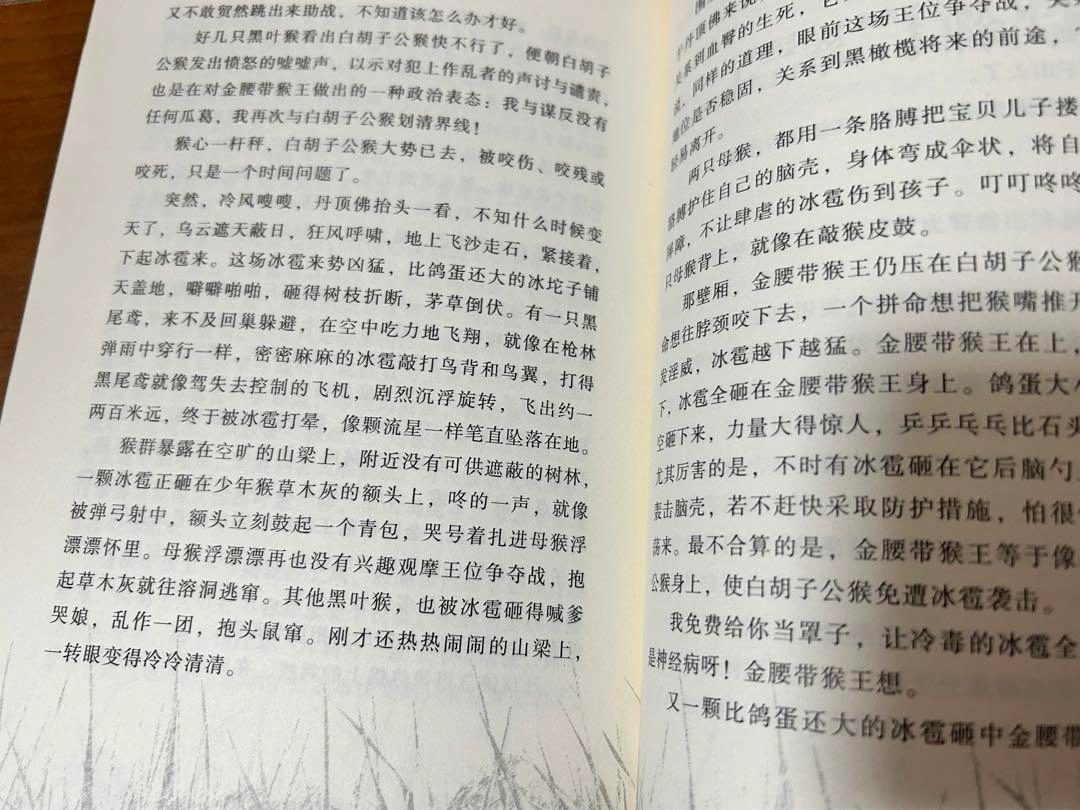 又不敢贸然跳出来助战，不知道该怎么办才好。
好几只黑叶猴看出白胡子公猴快不行了，便朝白胡子
公猴发出愤怒的嘘嘘声，以示对犯上作乱者的声讨与谴责，
也是在对金腰带猴王做出的一种政治表态：我与谋反没有
任何瓜葛，我再次与白胡子公猴划清界线！
猴心一杆秤，白胡子公猴大势已去，被咬伤、咬残或
咬死，只是一个时间问题了。
突然，冷风嗖嗖，丹顶佛抬头一看，不知什么时候变
天了，乌云遮天蔽日，狂风呼啸，地上飞沙走石，紧接着，
下起冰雹来。这场冰雹来势凶猛，比鸽蛋还大的冰坨子铺
天盖地，噼噼啪啪，砸得树枝折断，茅草倒伏。有一只黑
尾鸢，来不及回巢躲避，在空中吃力地飞翔，就像在枪林
弹雨中穿行一样，密密麻麻的冰雹敲打鸟背和鸟翼，打得
黑尾鸢就像驾驶失去控制的飞机，剧烈沉浮旋转，飞出约一
两百米远，终于被冰雹打晕，像颗流星一样笔直坠落在地。
猴群暴露在空旷的山梁上，附近没有可供遮蔽的树林，
一颗冰雹正砸在少年猴草木灰的额头上，咚的一声，就像
被弹弓射中，额头立刻鼓起一个青包，哭号着扎进母猴浮
漂漂怀里。母猴浮漂漂再也没有兴趣观摩王位争夺战，抱
起草木灰就往溶洞逃窜。其他黑叶猴，也被冰雹砸得喊爹
哭娘，乱作一团，抱头鼠窜。刚才还热热闹闹的山梁上，
一转眼变得冷冷清清。
于丹顶佛来说，
关系到血臀的生死，它
说，同样的道理，眼前这场王位争夺战，关
地位是否稳固，关系到黑橄榄将来的前途，
轻易离开。
两只母猴，都用一条胳膊把宝贝儿子搂
胳膊护住自己的脑壳，身体弯成伞状，将自
屏障，不让肆虐的冰雹伤到孩子。叮叮咚咚
只母猴背上，就像在敲猴皮鼓。
那壁厢，金腰带猴王仍压在白胡子公猴
命想往脖颈咬下去，一个拼命想把猴嘴推开
发淫威，冰雹越下越猛。金腰带猴王在上，
下，冰雹全砸在金腰带猴王身上。鸽蛋大小
空砸下来，力量大得惊人，乒乒乓乓比石头
尤其厉害的是，不时有冰雹砸在它后脑勺
轰击脑壳，若不赶快采取防护措施，怕很
荡来。最不合算的是，金腰带猴王等于像
公猴身上，使白胡子公猴免遭冰雹袭击。
我免费给你当罩子，让冷毒的冰雹全
是神经病呀！金腰带猴王想。
又一颗比鸽蛋还大的冰雹砸中金腰带